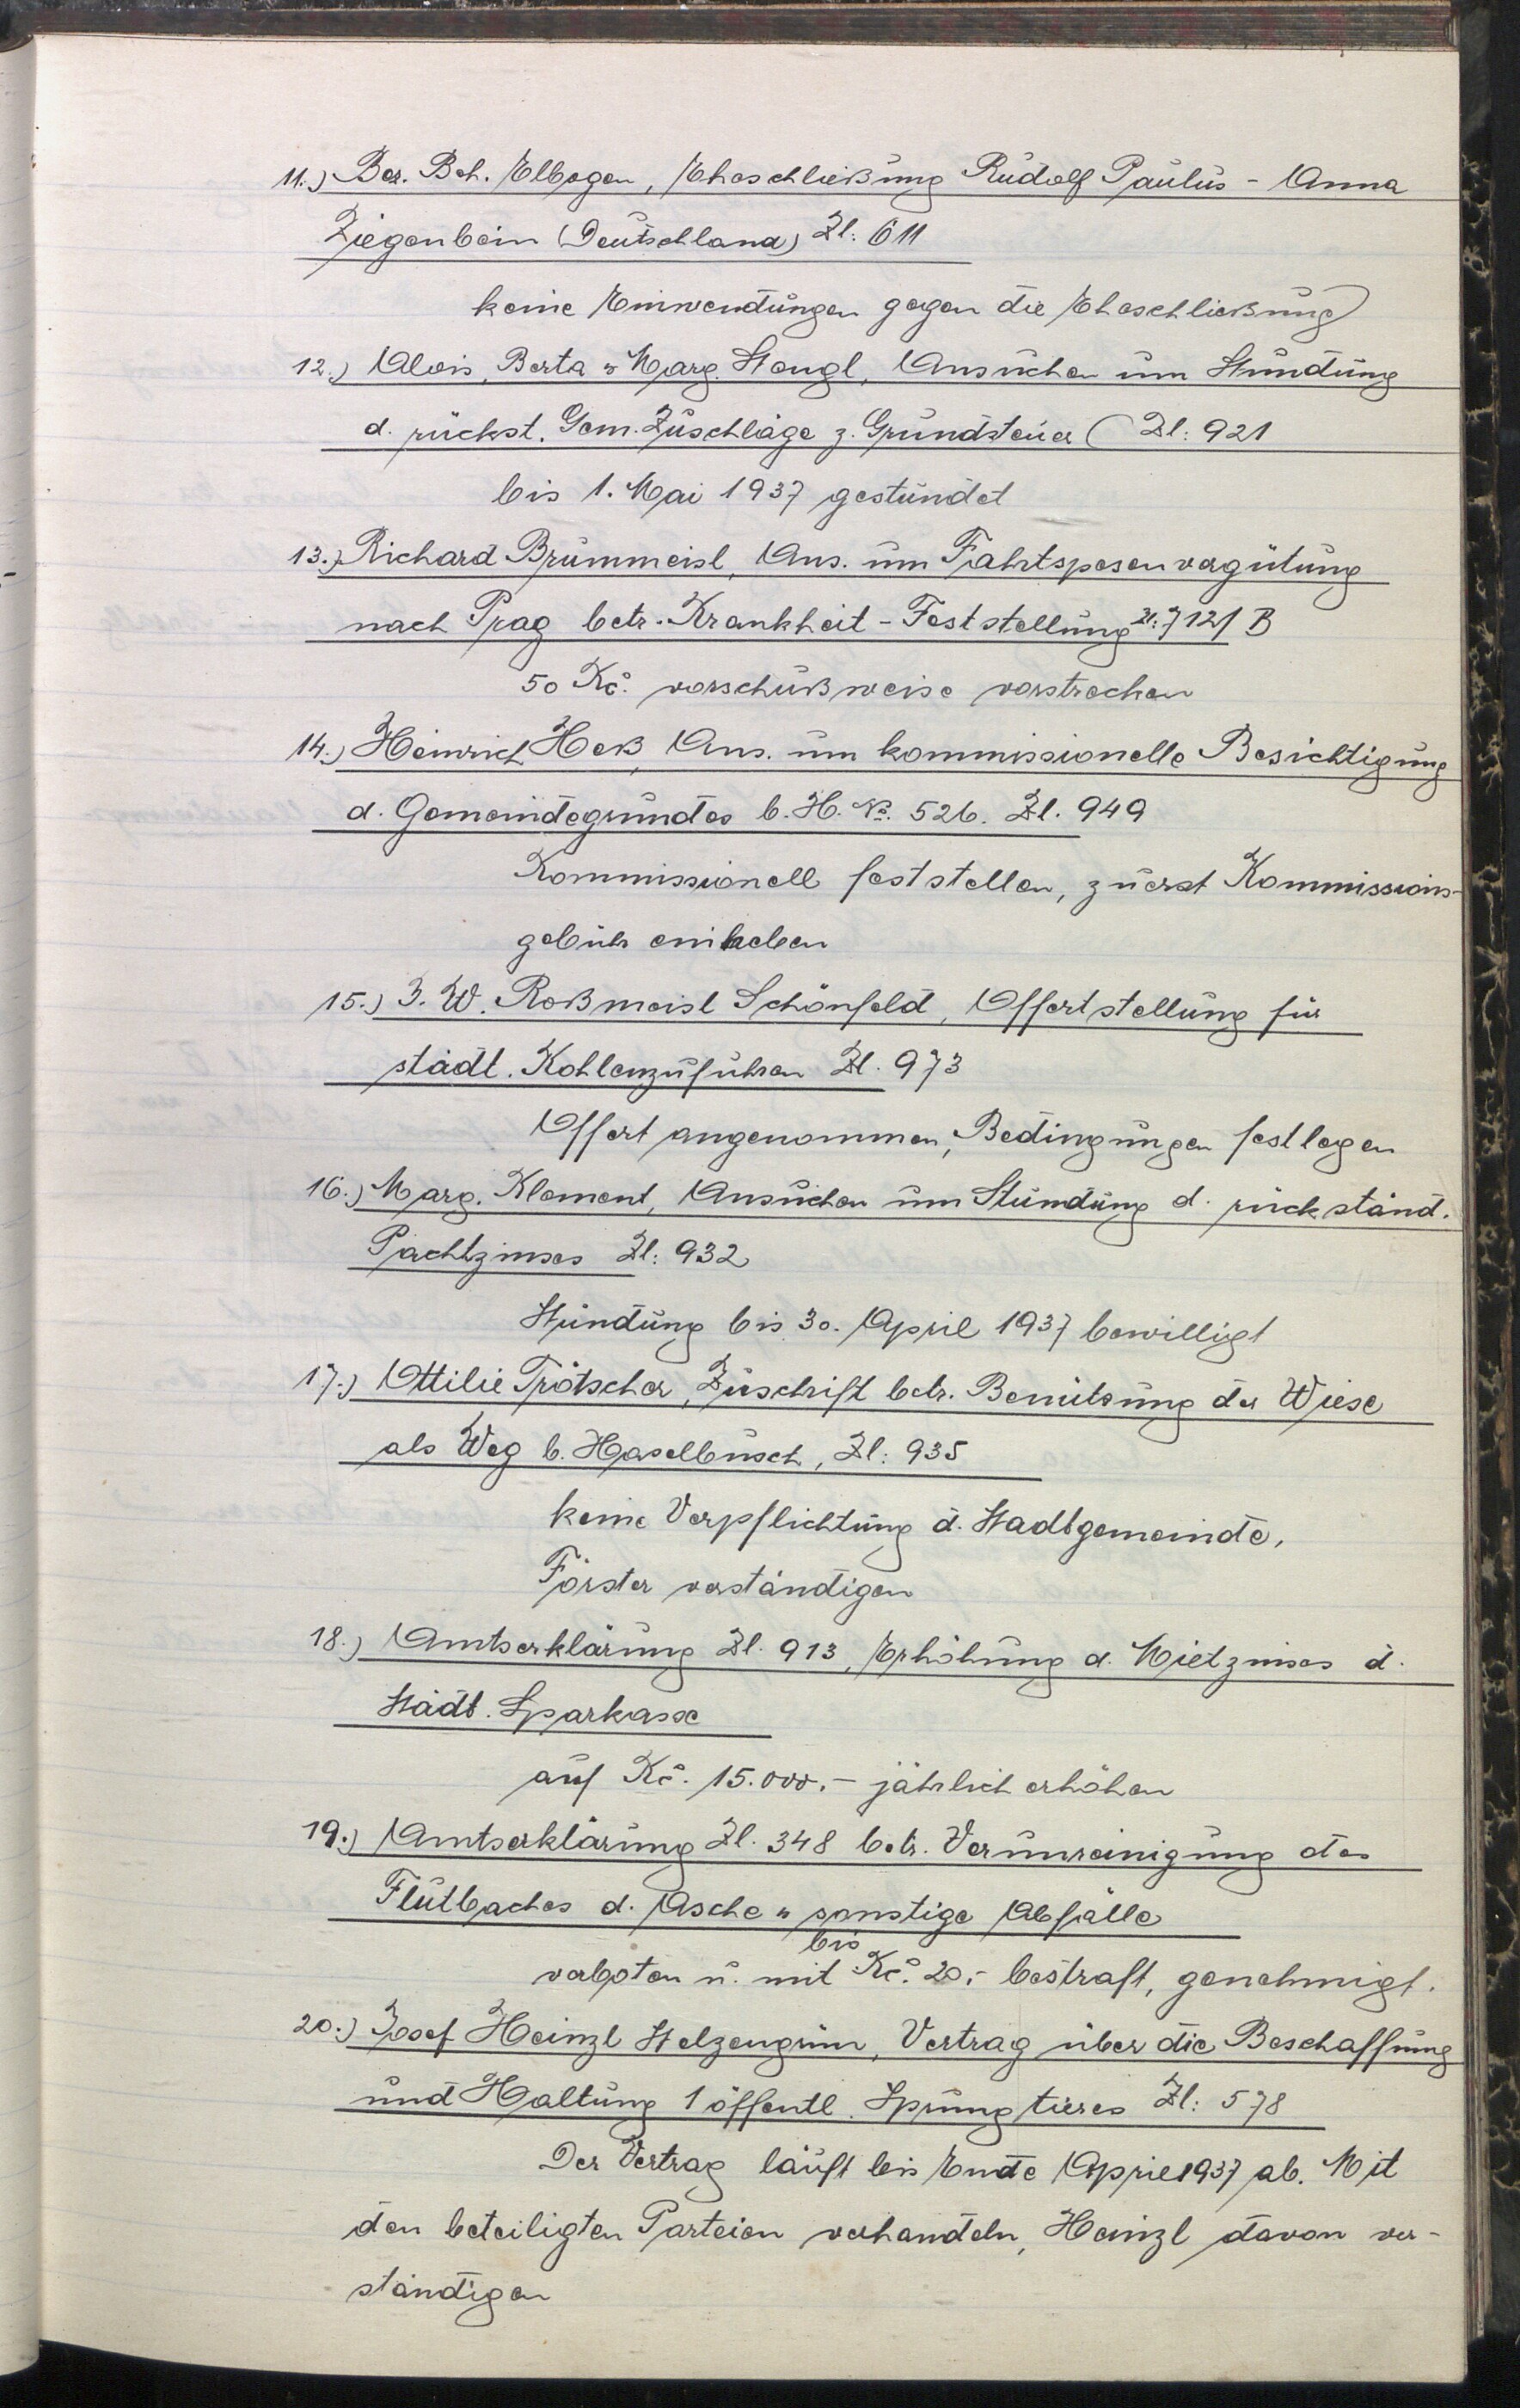 11.) Bez. Beh. Elbogen, Eheschließung Rudolf Paulus - Anna
Ziegenbein (Deutschland) Zl: 611
keine Einwendungen gegen die Eheschließung
12.) Alois, Berta u Marg. Stengl, Ansuchen um Stundung
d. rückst. Gem. Zuschläge z. Grundsteuer ( Zl: 921
bis 1. Mai 1937 gestundet
13.) Richard Brummeisl, Ans. um Fahrtspesenvergütung
nach Prag betr. Krankheit - Feststellung Zl: 7121 B
50 Kč. vorschußweise vorstrecken
14.) Heinrich Heß, Ans. um kommissionelle Besichtigung
d. Gemeindegrundes b. H. No. 526. Zl. 949
Kommissionell feststellen, zuerst Kommissions-
gebühr einheben
15.) J. W. Roßmeisl Schönfeld, Offertstellung für
städt. Kohlenzufuhren Zl. 973
Offert angenommen, Bedingungen festlegen
16.) Marg. Klement, Ansuchen um Stundung d. rückständ.
Pachtzinses Zl: 932
Stundung bis 30. April 1937 bewilligt
17.) Ottilie Trötscher, Zuschrift betr. Benützung der Wiese
als Weg b. Haselbusch, Zl: 935
keine Verpflichtung d. Stadtgemeinde,
Förster verständigen
18.) Amtserklärung Zl. 913, Erhöhung d. Mietzinses d.
Städt. Sparkasse
auf Kč. 15.000.- jährlich erhöhen
19.) Amtserklärung Zl. 348 betr. Verunreinigung des
Flutbaches d. Asche u sonstige Abfälle
verboten u. mit bis Kč. 20.- bestraft, genehmigt.
20.) Josef Heinzl Stelzengrün, Vertrag über die Beschaffung
und Haltung 1 öffentl. Sprungtieres Zl: 578
Der Vertrag läuft bis Ende April 1937 ab. Mit
den beteiligten Parteien verhandeln, Heinzl davon ver-
ständigen